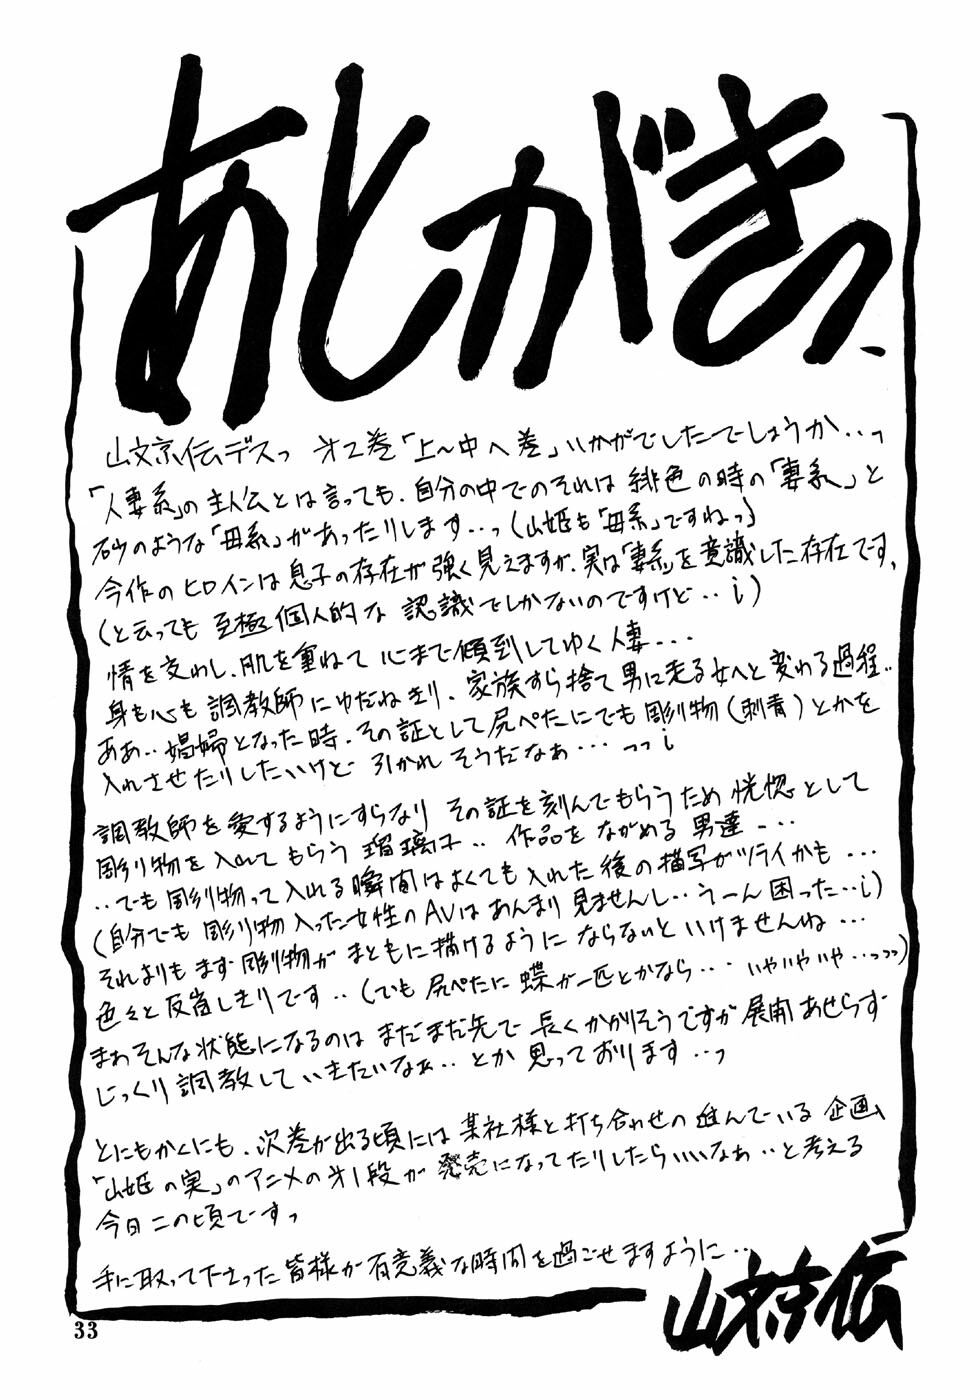 あとがきっ
山文京伝デスっ 才2巻「上~中へ巻」いかがでしたでしょうか‥っ
「人妻系」の主人公とは言っても、自分の中でのそれは緋色の時の「妻系」と
砂のような「母系」があったりします…っ(山姫も「母系」ですねっ)
今作のヒロインは息子の存在が強く見えますが、実は「妻系」を意識した存在です、
(と云っても至極個人的な認識でしかないのですけど‥i)
情を交わし、肌を重ねて心まで傾倒してゆく人妻…
身も心も調教師にゆだねきり、家族すら捨て男に走る女へと変わる過程‥
ああ‥娼婦となった時、その証として尻ぺたにでも彫り物(刺青)とかを
入れさせたりしたいけど引かれそうだなぁ…っっi
調教師を愛するようにすらなり その証を刻んでもらうため恍惚として
彫り物を入れてもらう瑠璃子‥作品をながめる男達…
‥でも彫り物って入れる瞬間はよくても入れた後の描写がツライかも…
(自分でも彫り物入った女性のAVはあんまり見ませんし‥うーん困った‥i)
それよりもまず彫り物がまともに描けるようにならないといけませんね…
色々と反省しきりです‥(でも尻ぺたに蝶が一匹とかなら‥・いやいやいや‥っっっ)
まわそんな状態になるのはまだまだ先で長くかかりそうですが展開あせらず
じっくり調教していきたいなぁ‥とか思っております‥っ
とにもかくにも、次巻が出る頃には某社様と打ち合わせの進んでいる企画、
「山姫の実」のアニメの才1段が発売になってたりしたらいいなぁ‥と考える
今日この頃ですっ
手に取って下さった皆様が有意義な時間を過ごせますように‥
山文京伝
33